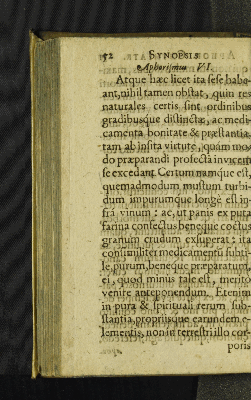 52 SYNOPSIS
Aphorismus VI.
Atque hæc licet ita sese habe-
ant, nihil tamen obstat, quin res
naturales certis sint ordinibus
gradibusque distinctæ, ac medi-
camenta bonitate & præstantia
tam ab insita virtute, quàm mo-
do præparandi profecta invicem
se excedant. Certum namque est,
quemadmodum mustum turbi-
dum impurumque longè est in-
frà vinum: ac, ut panis ex pura
farina confectus beneque coctus
granum crudum exsuperat: ita
consimiliter medicamentũ subti-
le, purum, beneque præparatum,
ei, quod minus tale est, meritò
venire anteponendum. Etenim
in pura & spirituali rerum sub-
stantia, propriisque earundem e-
lementis, non in terrestri illo cor-
poris